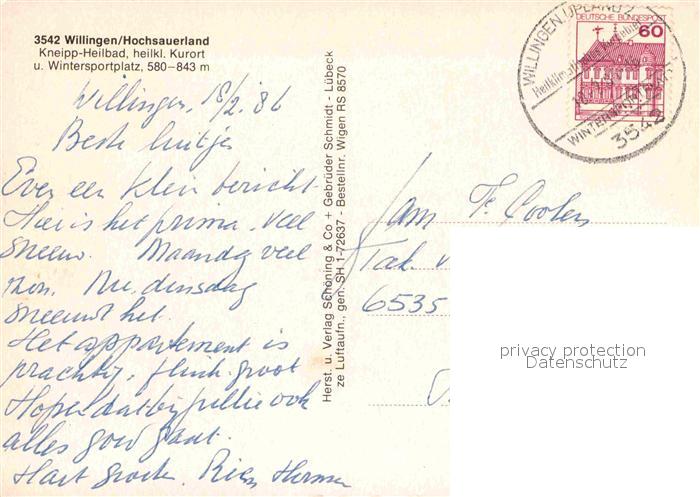 3542 Willingen/Hochsauerland
Kneipp-Heilbad, heilkl. Kurort
u. Wintersportplatz, 580-843 m
Willingen, 18/2. 86
Beste luitjes
Even een klein bericht.
Hier is het prima. Veel
sneeuw. Maandag veel
zon. Nu, dinsdag
sneeuwt het.
Het appartement is
prachtig, flink groot
Hoper dat bij jullie ook
alles goed gaat.
Hart groeten. Rien Herman
Herst. u. Verlag Schöning & Co + Gebrüder Schmidt - Lübeck
ze Luftaufn., gen. SH 1-72637 - Bestellnr. Wigen RS 8570
WILLINGEN (UPLAND) 2
Heilklimatischer
WINTERSPORTPLATZ
3542
DEUTSCHE BUNDESPOST
60
Fam F. Coolen
Tak
6535
privacy protection
Datenschutz